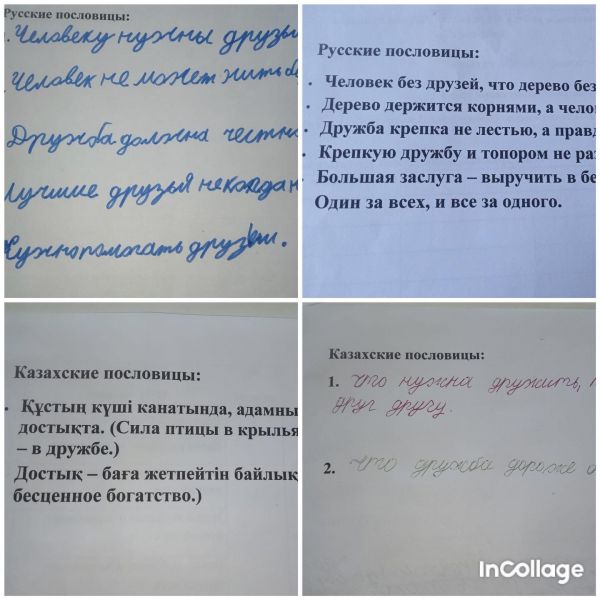 Русские пословицы:
. Человеку нужны друзья
. Человек не может жить бе
Дружба должна честна
Лучшие друзья никогда н
Нужно помогать друзьям.
Русские пословицы:
• Человек без друзей, что дерево без
• Дерево держится корнями, а чело
• Дружба крепка не лестью, а правд
• Крепкую дружбу и топором не ра
• Большая заслуга – выручить в бе
Один за всех, и все за одного.
Казахские пословицы:
• Құстың күші канатында, адамны
достықта. (Сила птицы в крылья
– в дружбе.)
Достық – баға жетпейтін байлық
бесценное богатство.)
Казахские пословицы:
1. Что нужна дружить,
друг другу.
2. Что дружба дороже
InCollage